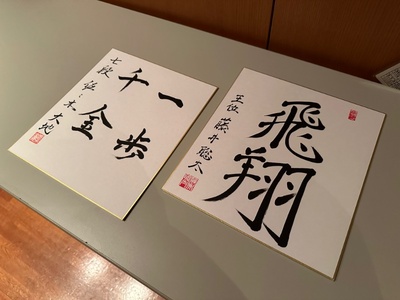 一歩
千金
七段 佐々木大地
飛翔
王位 藤井聡太